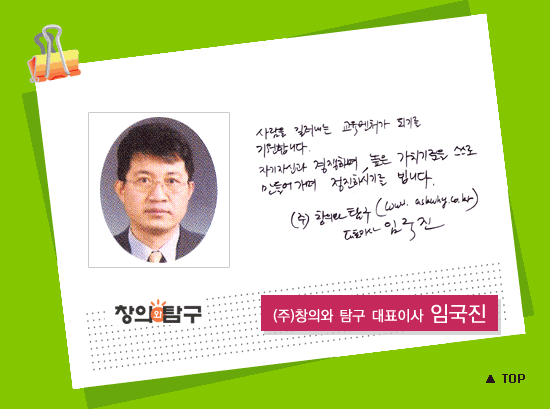 사람을 길러내는 교육벤처가 되기를
기원합니다.
자기자신과 경쟁하며 높은 가치기준을 스스로
만들어가며 정진하시기를 빕니다.
(주) 창의와 탐구 (www. askwhy.co.kr)
대표이사 임국진
창의와탐구
(주)창의와 탐구 대표이사 임국진
▲ TOP